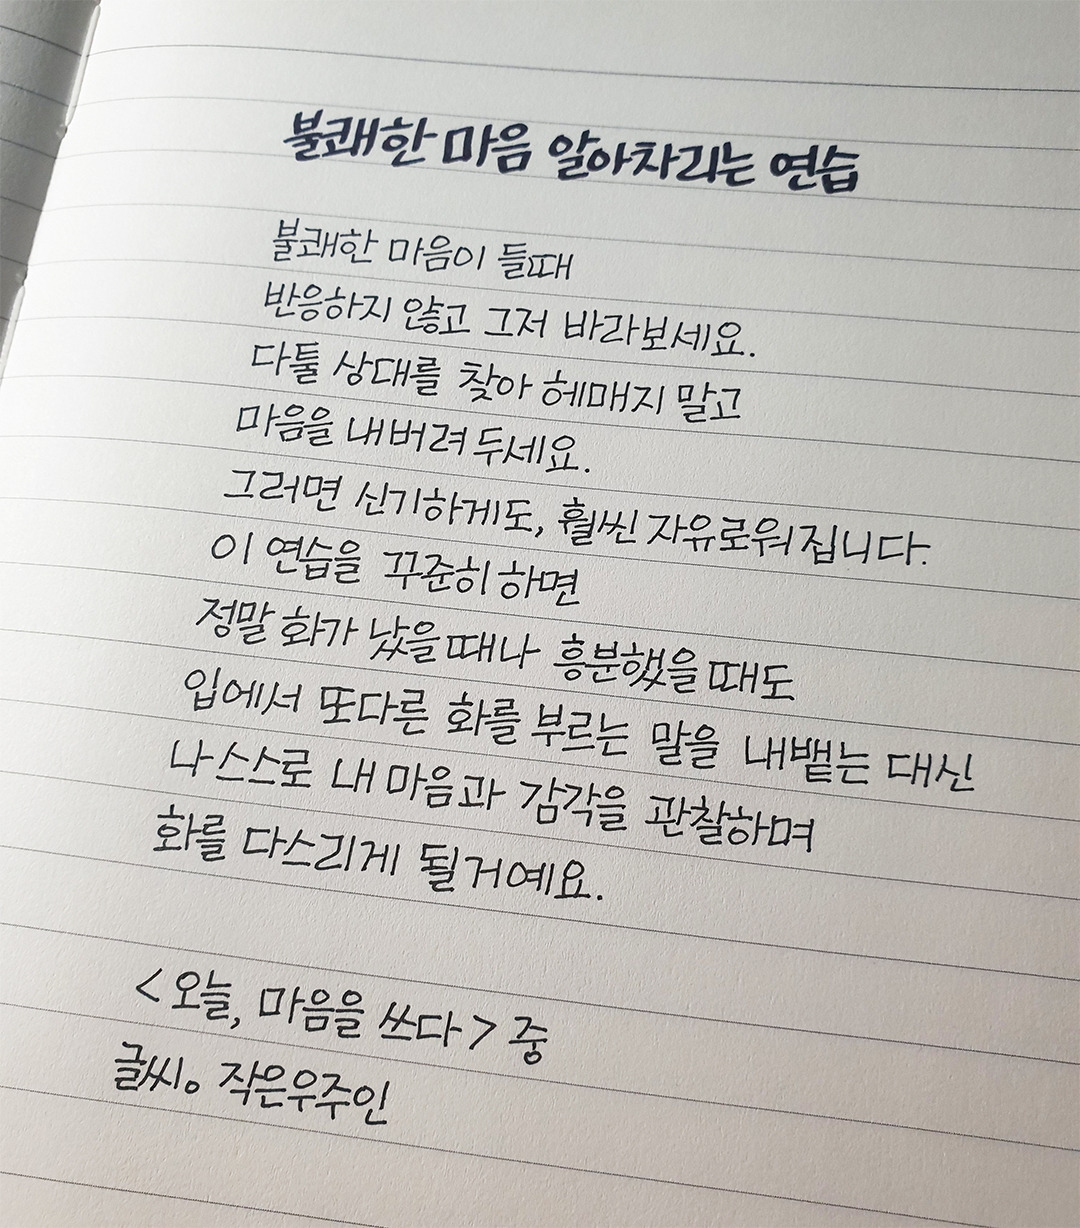 불쾌한 마음 알아차리는 연습
불쾌한 마음이 들때
반응하지 않고 그저 바라보세요.
다툴 상대를 찾아 헤매지 말고
마음을 내버려 두세요.
그러면 신기하게도, 훨씬 자유로워집니다.
이 연습을 꾸준히 하면
정말 화가 났을때나 흥분했을때도
입에서 또다른 화를 부르는 말을 내뱉는 대신
나 스스로 내 마음과 감각을 관찰하며
화를 다스리게 될거예요.
<오늘, 마음을 쓰다> 중
글씨。작은우주인